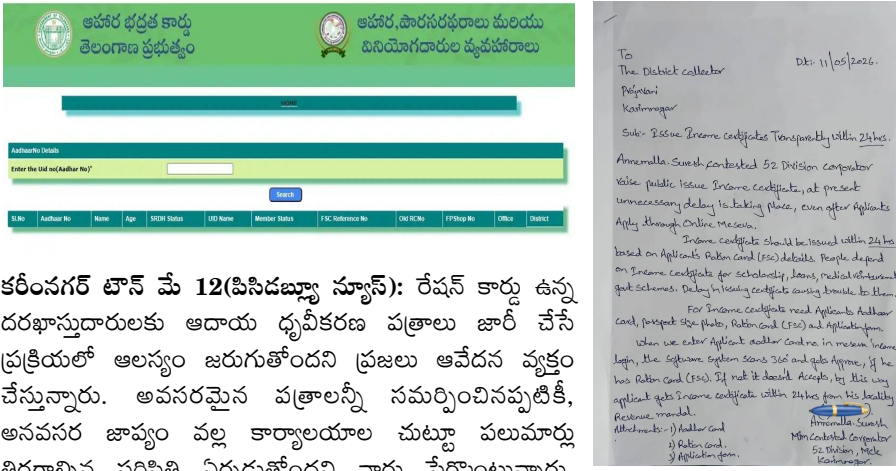 ఆహార భద్రత కార్డు
తెలంగాణ ప్రభుత్వం
ఆహార,పౌరసరఫరాలు మరియు
వినియోగదారుల వ్యవహారాలు
HOME
AadhaarNo Details
Enter the Uid no(Aadhar No)*
Search
Sl.No Aadhaar No Name Age SRDH Status UID Name Member Status FSC Reference No Old RCNo FPShop No Office District
కరీంనగర్ టౌన్ మే 12(పిసిడబ్ల్యూ న్యూస్): రేషన్ కార్డు ఉన్న
దరఖాస్తుదారులకు ఆదాయ ధృవీకరణ పత్రాలు జారీ చేసే
ప్రక్రియలో ఆలస్యం జరుగుతోందని ప్రజలు ఆవేదన వ్యక్తం
చేస్తున్నారు. అవసరమైన పత్రాలన్నీ సమర్పించినప్పటికీ,
అనవసర జాప్యం వల్ల కార్యాలయాల చుట్టూ పలుమార్లు
To
Dt:- 11/05/2026.
The District collector
Prajavani
Karimnagar
Sub:- Issue Income certificates Transparently within 24 hrs.
Annemalla. Suresh contested 52 Division corporator
raise public issue Income certificate, at present
unnecessary delay is taking place, even after Applicants
Apply through Online Meseva.
Income certificate should be issued within 24 hrs
based on Applicants Ration card (FSC) details. People depend
on Income certificate for scholarship, loans, medical reimbursement
govt schemes. Delay in issuing certificate causing trouble to them.
For Income certificate need Applicants Aadhaar
card, passport size photo, Ration card (FSC) and Apliction form.
when we enter Applicant aadhar card no. in meseva income
login, the software system scans 360 and gets Approve, if he
has Ration card (FSC). If not it doesn't Accepts, by this way
applicant gets Income certificate within 24 hrs from his locality
Revenue mandal.
Attachments:- 1) Aadhar card
2) Ration card.
3) Application form.
Annemalla. Suresh
Contested Corporator
52 Division, MCK
Karimnagar